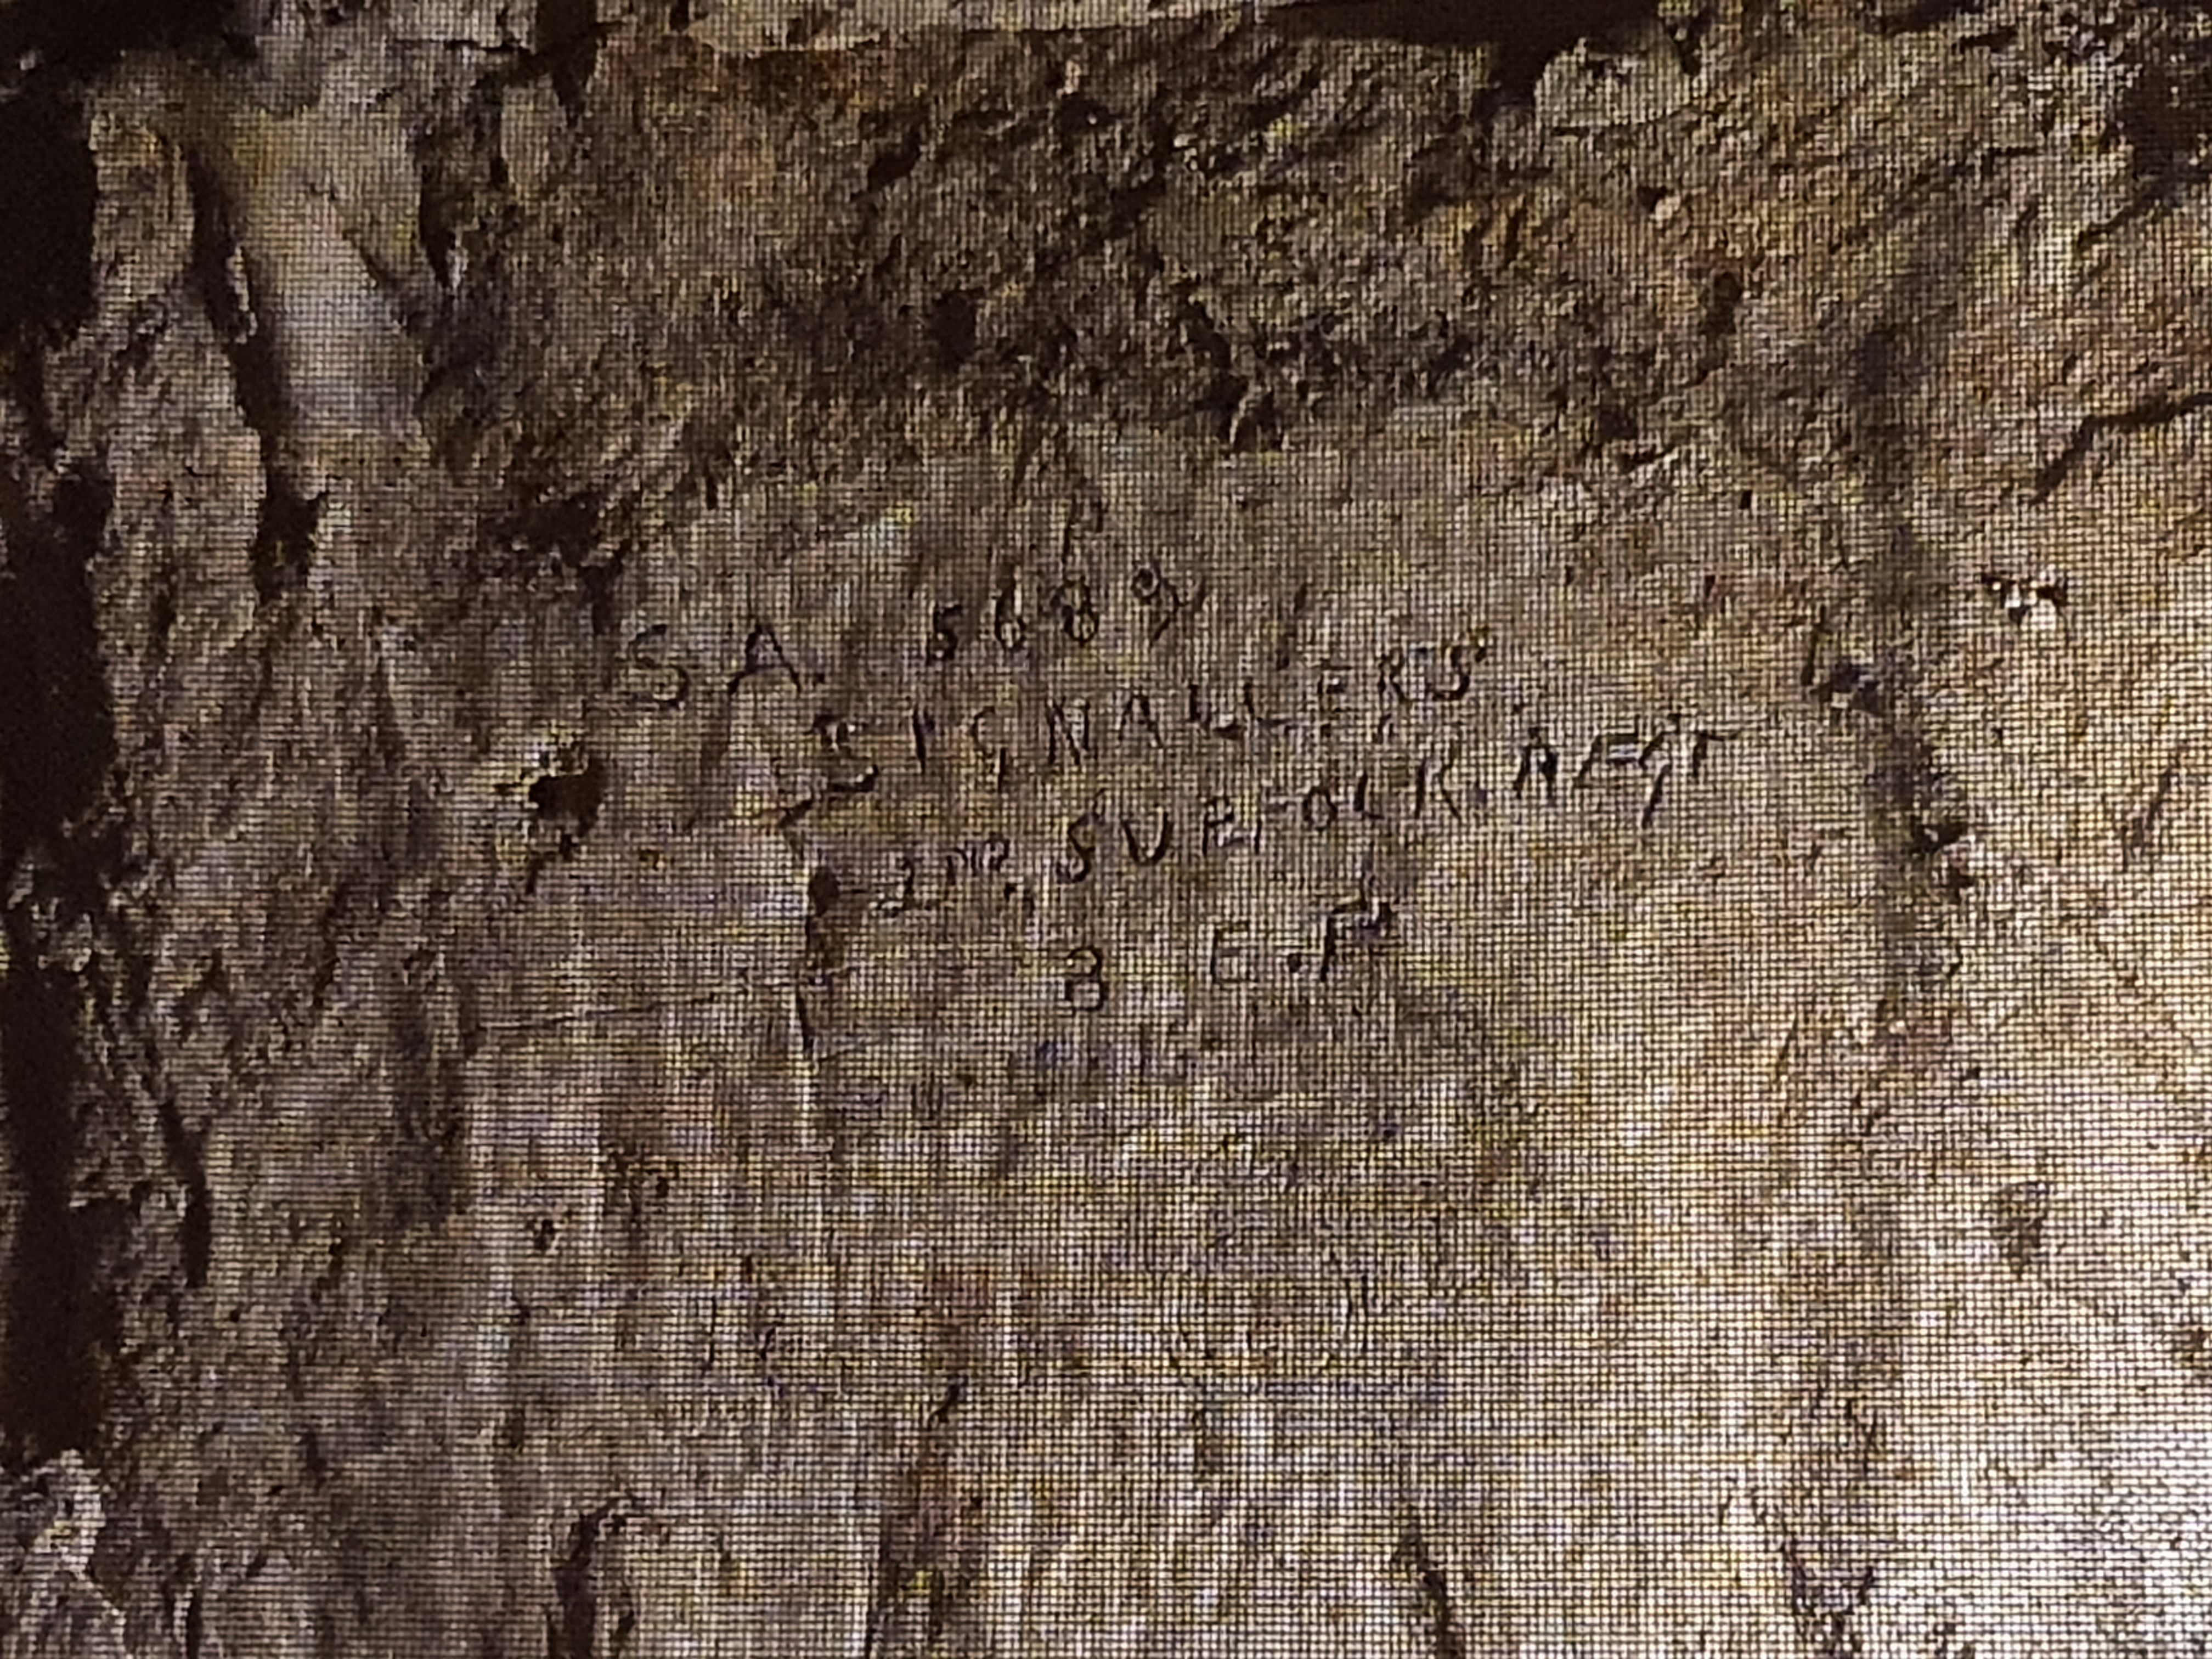 S.A. 5689
SIGNALLERS
2ND. SUFFOLK. REGT
B E.F